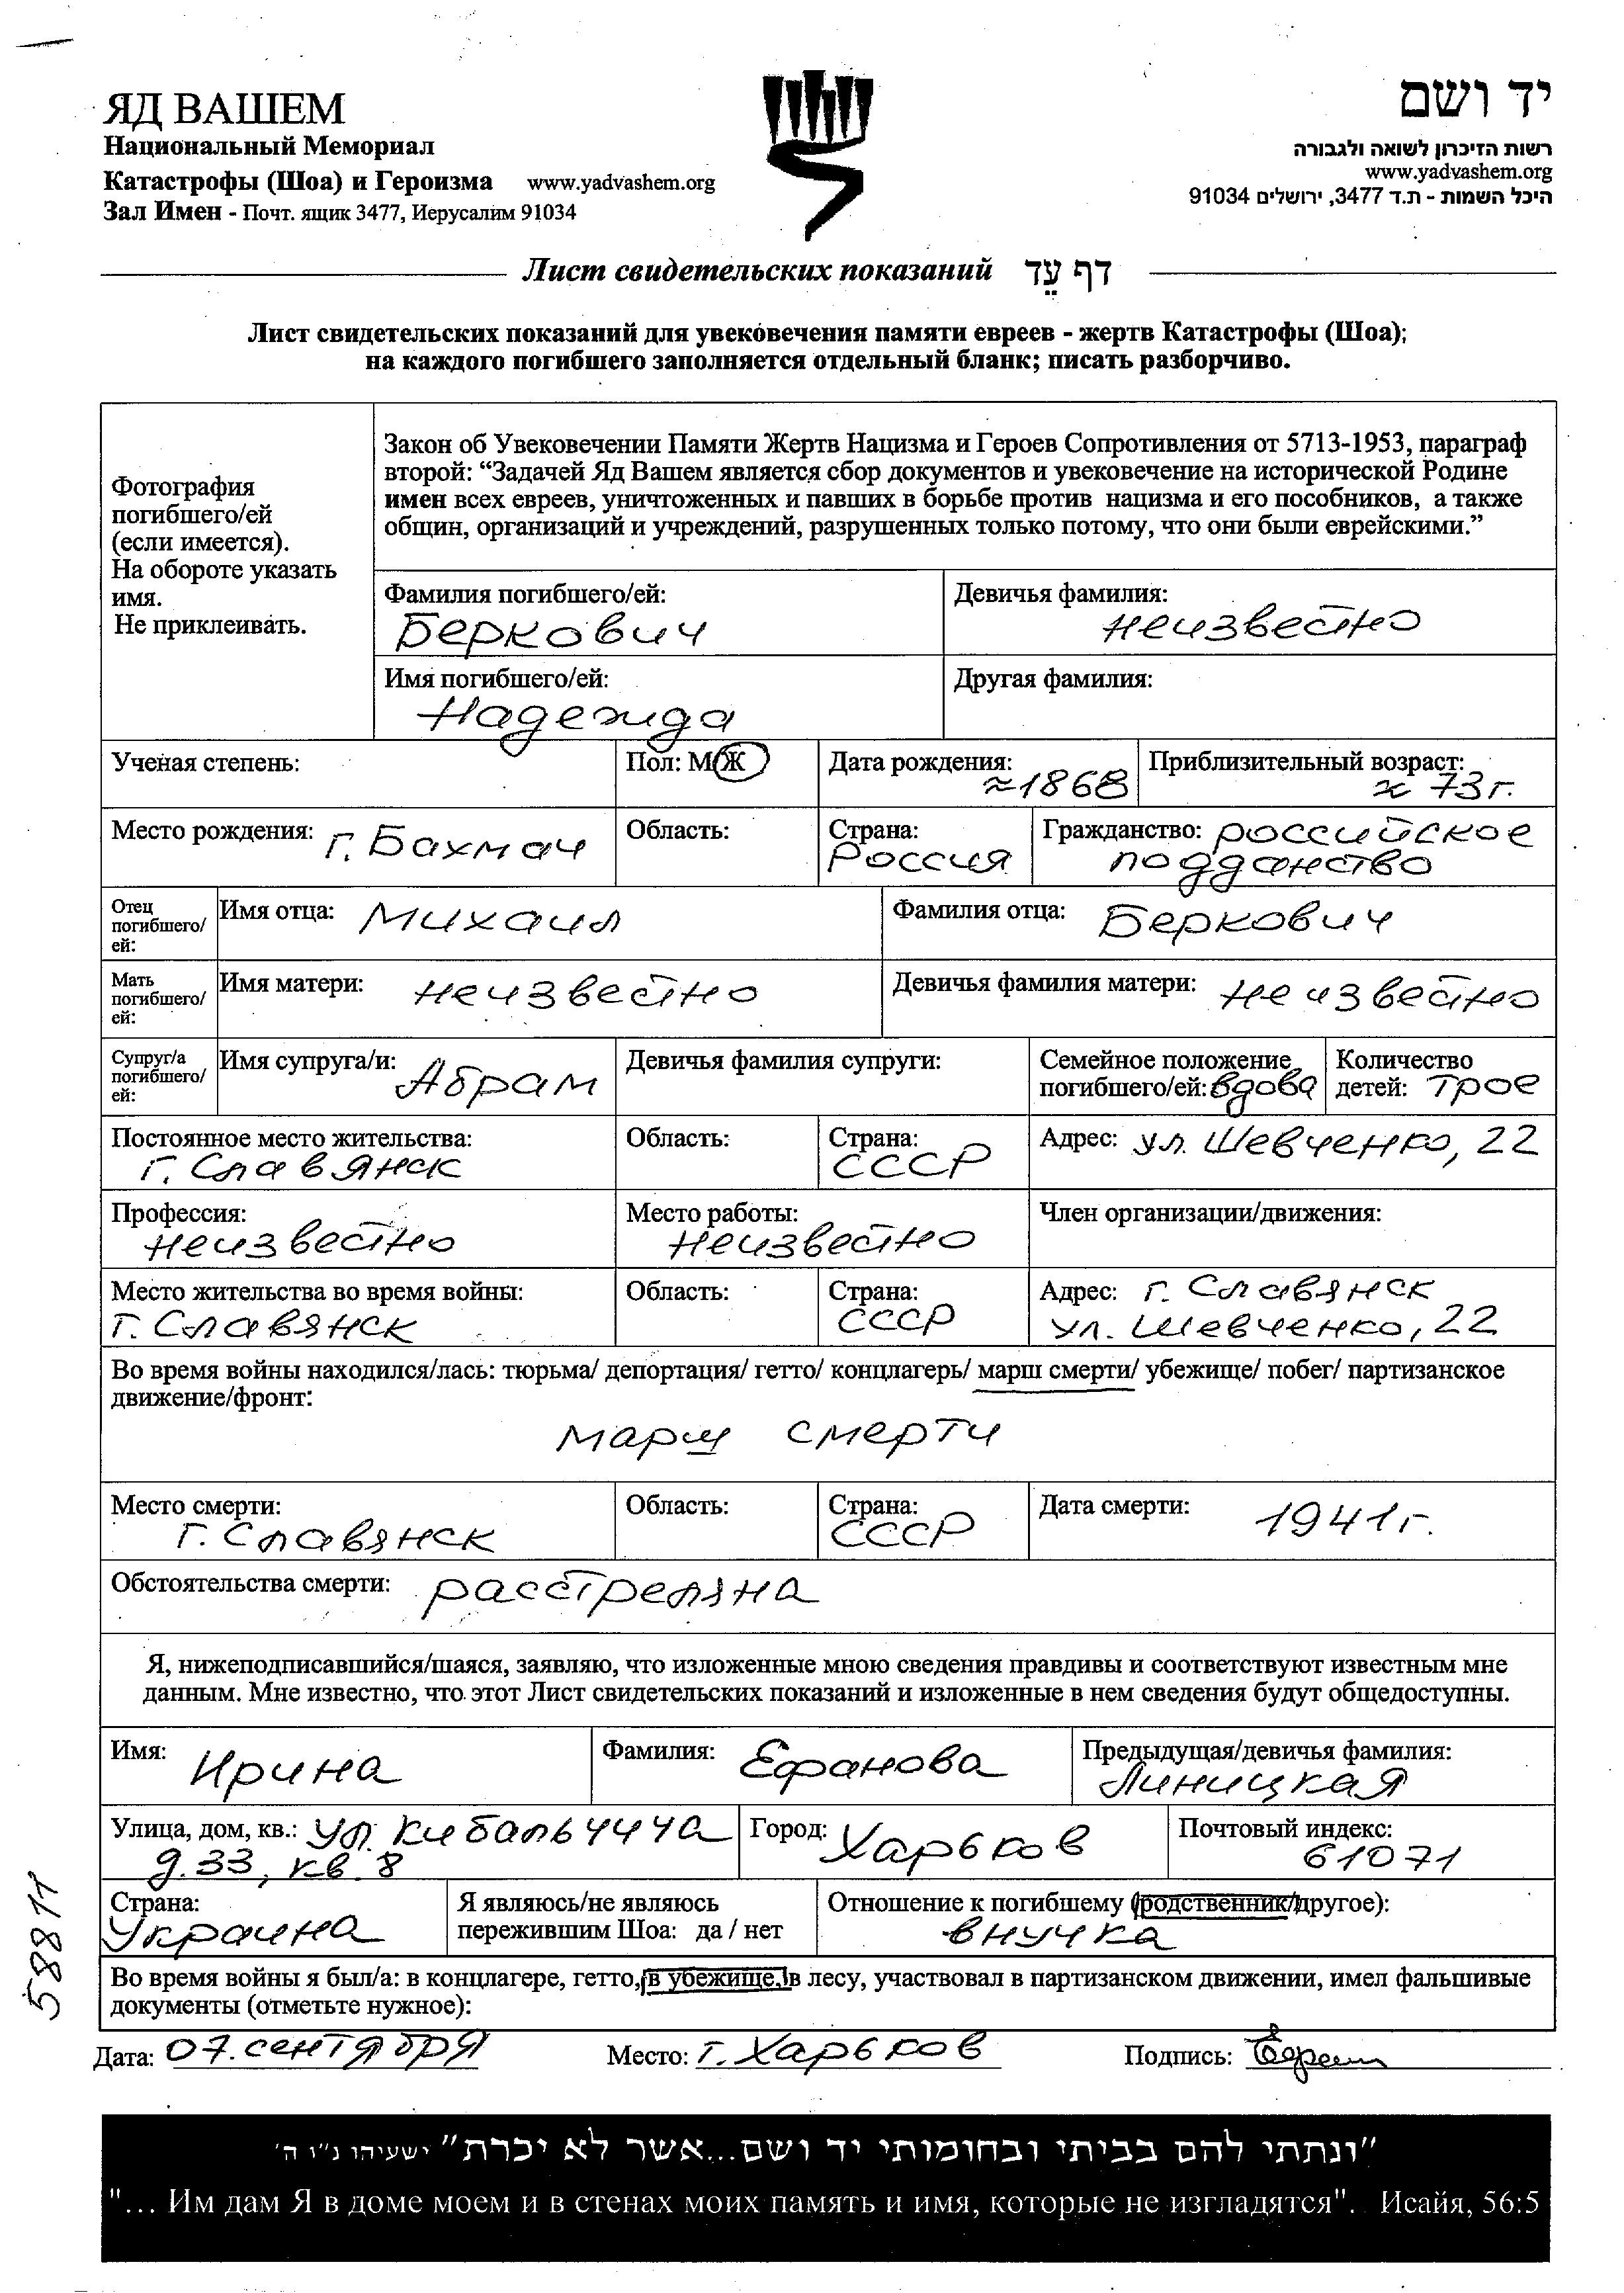 ЯД ВАШЕМ
Национальный Мемориал
Катастрофы (Шоа) и Героизма www.yadvashem.org
Зал Имен - Почт. ящик 3477, Иерусалим 91034
יד ושם
רשות הזיכרון לשואה ולגבורה
www.yadvashem.org
היכל השמות - ת.ד 3477, ירושלים 91034
Лист свидетельских показаний דף עֵד
Лист свидетельских показаний для увековечения памяти евреев - жертв Катастрофы (Шоа);
на каждого погибшего заполняется отдельный бланк; писать разборчиво.
Фотография
погибшего/ей
(если имеется).
На обороте указать
имя.
Не приклеивать.
Закон об Увековечении Памяти Жертв Нацизма и Героев Сопротивления от 5713-1953, параграф
второй: “Задачей Яд Вашем является сбор документов и увековечение на исторической Родине
имен всех евреев, уничтоженных и павших в борьбе против нацизма и его пособников, а также
общин, организаций и учреждений, разрушенных только потому, что они были еврейскими.”
Фамилия погибшего/ей:
Беркович
Девичья фамилия:
неизвестно
Имя погибшего/ей:
Надежда
Другая фамилия:
Ученая степень:
Пол: М/Ж
Дата рождения:
≈1868
Приблизительный возраст:
≈ 73 г.
Место рождения: г. Бахмач
Область:
Страна:
Россия
Гражданство: российское
подданство
Отец
погибшего/
ей:
Имя отца: Михаил
Фамилия отца: Беркович
Мать
погибшего/
ей:
Имя матери: неизвестно
Девичья фамилия матери: неизвестно
Супруг/а
погибшего/
ей:
Имя супруга/и: Абрам
Девичья фамилия супруги:
Семейное положение
погибшего/ей: вдова
Количество
детей: трое
Постоянное место жительства:
г. Славянск
Область:
Страна:
СССР
Адрес: ул. Шевченко, 22
Профессия:
неизвестно
Место работы:
неизвестно
Член организации/движения:
Место жительства во время войны:
г. Славянск
Область:
Страна:
СССР
Адрес: г. Славянск
ул. Шевченко, 22
Во время войны находился/лась: тюрьма/ депортация/ гетто/ концлагерь/ марш смерти/ убежище/ побег/ партизанское
движение/фронт:
марш смерти
Место смерти:
г. Славянск
Область:
Страна:
СССР
Дата смерти: 1941 г.
Обстоятельства смерти: расстреляна
Я, нижеподписавшийся/шаяся, заявляю, что изложенные мною сведения правдивы и соответствуют известным мне
данным. Мне известно, что этот Лист свидетельских показаний и изложенные в нем сведения будут общедоступны.
Имя: Ирина
Фамилия: Ефанова
Предыдущая/девичья фамилия:
Линицкая
Улица, дом, кв.: ул. Кибальчича
д. 33, кв. 8
Город: Харьков
Почтовый индекс:
61071
Страна:
Украина
Я являюсь/не являюсь
пережившим Шоа: да / нет
Отношение к погибшему (родственник/другое):
внучка
Во время войны я был/а: в концлагере, гетто, в убежище, в лесу, участвовал в партизанском движении, имел фальшивые
документы (отметьте нужное):
Дата: 07. сентября
Место: г. Харьков
Подпись:
58811
"ונתתי להם בביתי ובחומותי יד ושם...אשר לא יכרת" ישעיהו נ"ו ה'
"... Им дам Я в доме моем и в стенах моих память и имя, которые не изгладятся". Исайя, 56:5